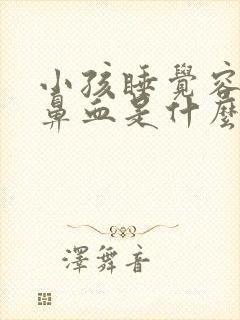 小孩睡覺容
鼻血是什麼
澤舞音